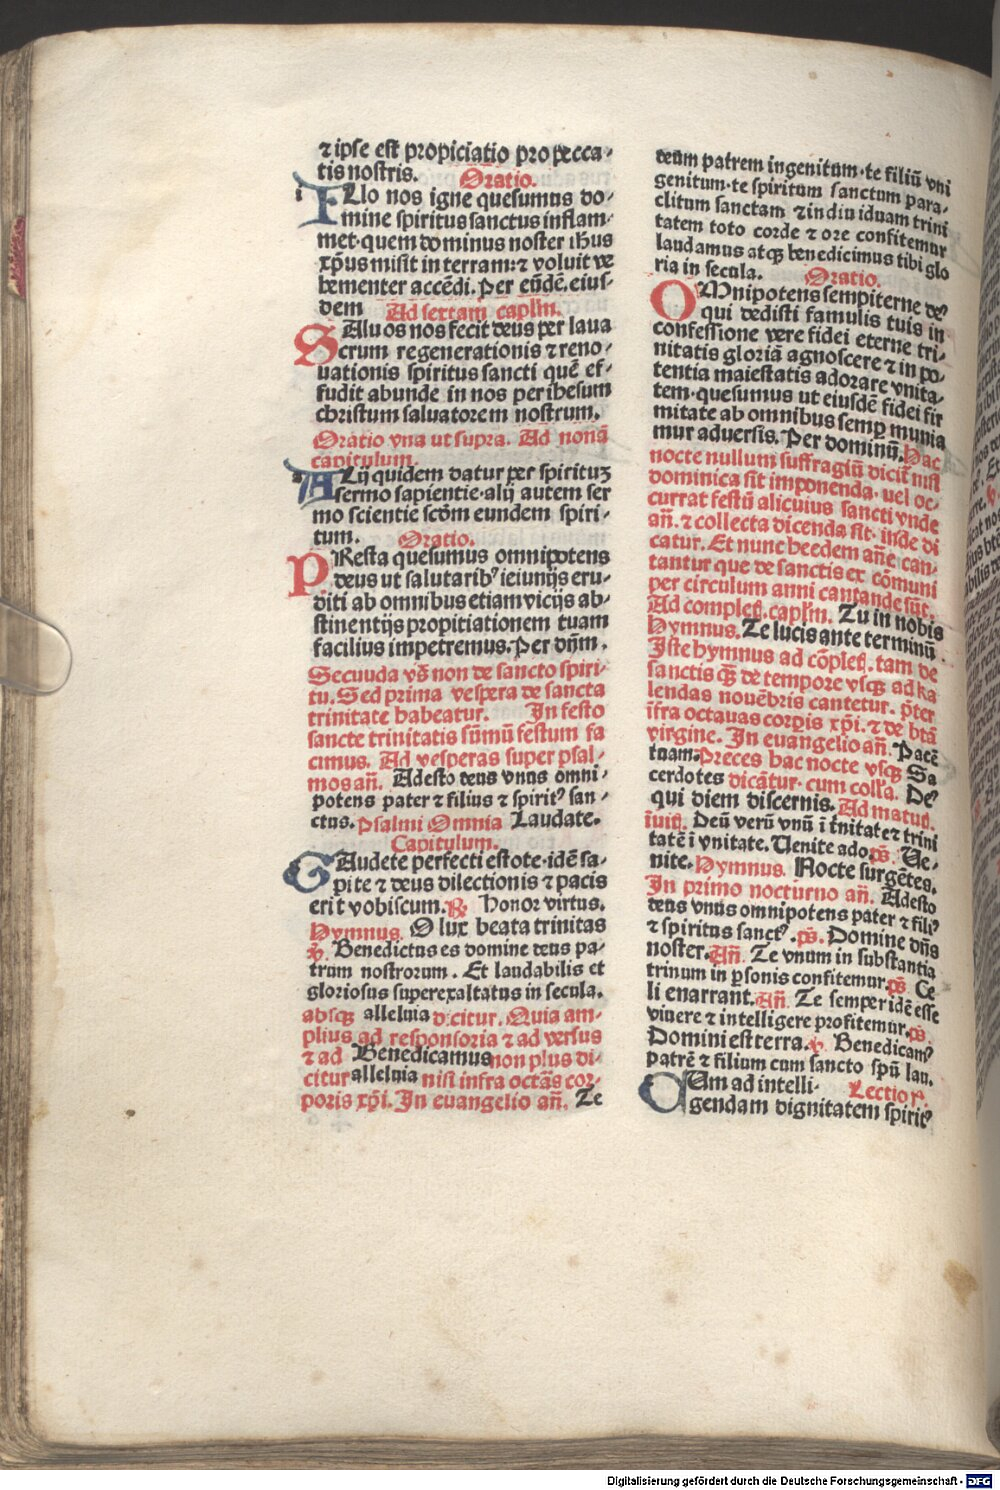 ⁊ ipse est propiciatio pro pecca⸗
tis nostris. Oratio.
i FLlo nos igne quesumus do⸗
mine spiritus sanctus inflam⸗
met·quem dominus noster ihus
xp̄us misit in terram:⁊ voluit ve
hementer accēdi. Per eūdē. eius⸗
dem Ad sextam caplm̄.
SAluos nos fecit deus per laua
crum regenerationis ⁊ reno⸗
uationis spiritus sancti quē ef⸗
fudit abunde in nos per ihesum
christum saluatorem nostrum.
Oratio vna ut supra. Ad nonā
capitulum.
ALij quidem datur per spirituꝫ
sermo sapientie·alij autem ser
mo scientie scd̄m eundem spiri⸗
tum. Oratio.
PResta quesumus omnipotens
deus ut salutaribꝰ ieiunijs eru⸗
diti ab omnibus etiam vicijs ab⸗
stinentijs propitiationem tuam
facilius impetremus. Per dn̄m.
Secuuda vs̄ non de sancto spiri⸗
tu. Sed prima vespera de sancta
trinitate habeatur. In festo
sancte trinitatis sūmū festum fa
cimus. Ad vesperas super psal⸗
mos an̄. Adesto deus vnus omni⸗
potens pater ⁊ filius ⁊ spiritꝰ san⸗
ctus. Psalmi Omnia Laudate.
Capitulum.
GAudete perfecti estote·idē sa⸗
pite ⁊ deus dilectionis ⁊ pacis
erit vobiscum. ℟. Honor virtus.
Hymnus. O lux beata trinitas
℣. Benedictus es domine deus pa⸗
trum nostrorum. Et laudabilis et
gloriosus superexaltatus in secula.
absqꝫ alleluia dicitur. Quia am⸗
plius ad responsoria ⁊ ad versus
⁊ ad Benedicamus non plus di⸗
citur alleluia nisi infra octāas cor⸗
poris xp̄i. In euangelio an̄. Te
deum patrem ingenitum·te filiū vni
genitum·te spiritum sanctum para⸗
clitum sanctam ⁊ indiuiduam trini
tatem toto corde ⁊ ore confitemur
laudamus atqꝫ benedicimus tibi glo
ria in secula. Oratio.
OMnipotens sempiterne deꝰ
qui dedisti famulis tuis in
confessione vere fidei eterne tri⸗
nitatis gloriā agnoscere ⁊ in po⸗
tentia maiestatis adorare vnita⸗
tem·quesumus ut eiusdē fidei fir
mitate ab omnibus semꝑ munia
mur aduersis. Per dominū. Hac
nocte nullum suffragiū dicit̄ nisi
dominica sit imponenda·uel oc⸗
currat festū alicuius sancti vnde
an̄. ⁊ collecta dicenda sit·inde di
catur. Et nunc heedem an̄e can⸗
tantur que de sanctis ex cōmuni
per circulum anni cantande sūt.
Ad completꝭ. caplm̄. Tu in nobis
Hymnus. Te lucis ante terminū.
Iste hymnus ad cōpletꝭ. tam de
sanctis qꝫ̄ de tempore vsqꝫ ad ka
lendas nouēbris cantetur. p̄ter
īfra octauas corꝑis xp̄i. ⁊ de btā
virgine. In euangelio an̄. Pacē
tuam. Preces hac nocte vsqꝫ Sa
cerdotes dicātur·cum coll̄a. Deꝰ
qui diem discernis. Ad matutꝭ.
īuitꝭ. Deū verū vnū ī t̄nitate ⁊ trini
tatē ī vnitate. Uenite ado. ps̄. Ue⸗
nite. Hymnus. Nocte surgētes.
In primo nocturno an̄. Adesto
deus vnus omnipotens pater ⁊ filiꝰ
⁊ spiritus sanctꝰ. ps̄. Domine dn̄s
noster. An̄. Te vnum in substantia
trinum in ꝑsonis confitemur. ps̄. Ce
li enarrant. An̄. Te semper idē esse
viuere ⁊ intelligere profitemur. ps̄.
Domini est terra. ℣. Benedicamꝰ
patrē ⁊ filium cum sancto spū lau.
QUam ad intelli⸗ Lectio pꝰ.
gendam dignitatem spiritꝰ
Digitalisierung gefördert durch die Deutsche Forschungsgemeinschaft - DFG